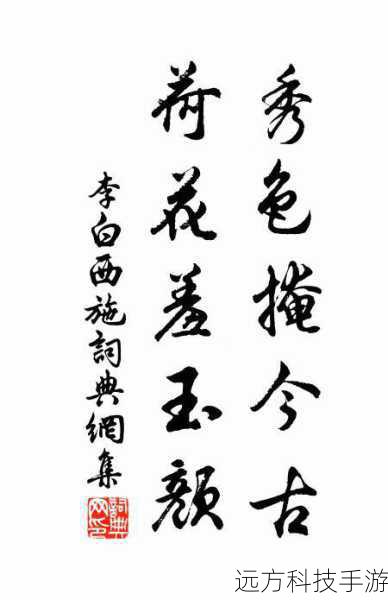 秀色掩今古
荷花羞玉顏
李白西施詞典網集
远方科技手游